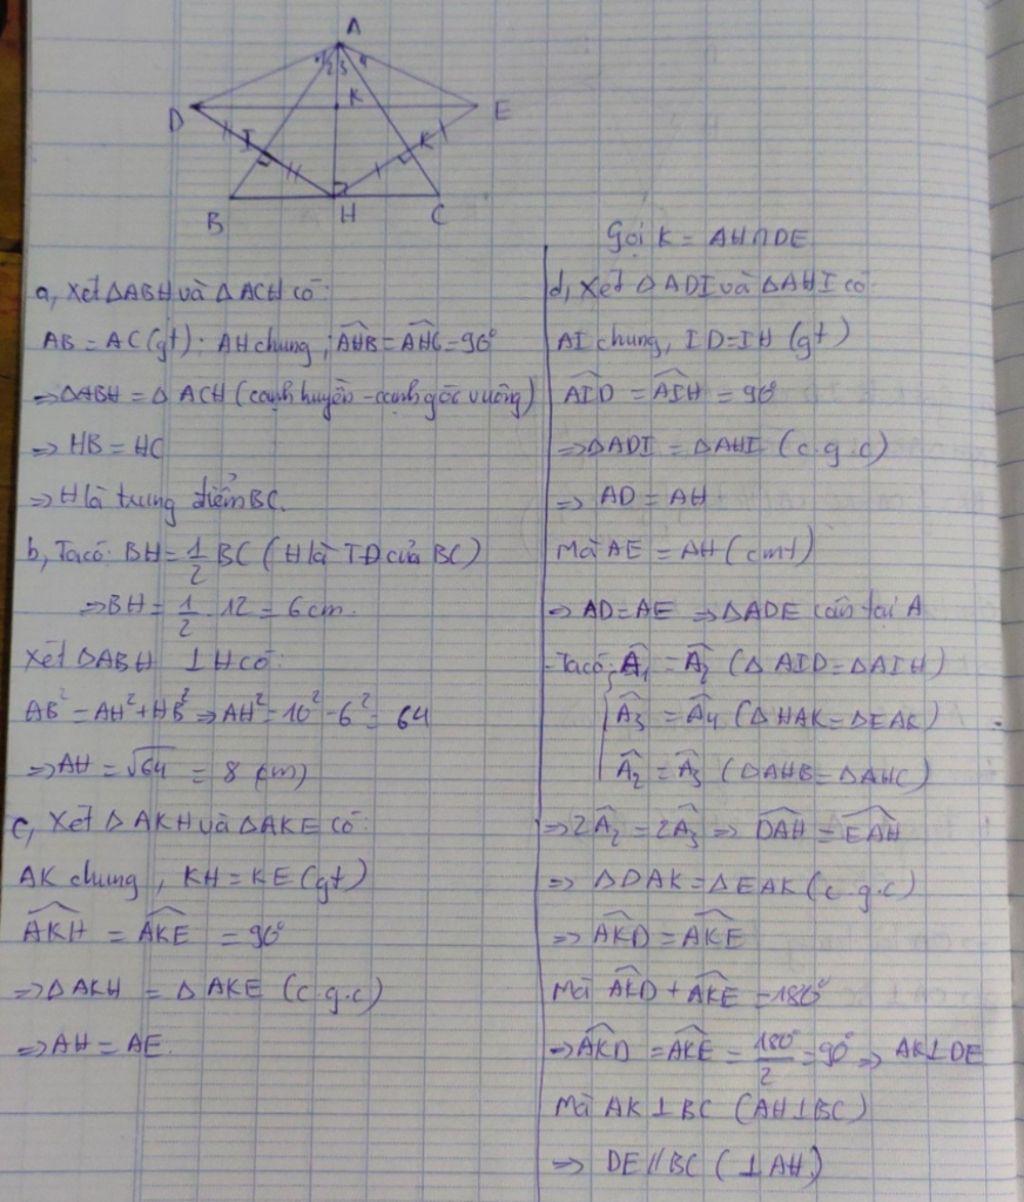 A
1 2 3 4
K
D
E
I
K
B
H
C
Gọi K = AH∩DE
a, Xét ΔABH và ΔACH có:
AB = AC (gt); AH chung; \widehat{AHB} = \widehat{AHC} = 90°
⇒ ΔABH = ΔACH (cạnh huyền - cạnh góc vuông)
⇒ HB = HC
⇒ H là trung điểm BC.
b, Ta có: BH = 1/2 BC (H là TĐ của BC)
⇒ BH = 1/2 . 12 = 6cm.
Xét ΔABH ⊥ H có:
AB² = AH² + HB² ⇒ AH² = 10² - 6² = 64
⇒ AH = √64 = 8 (cm)
c, Xét ΔAKH và ΔAKE có:
AK chung, KH = KE (gt)
\widehat{AKH} = \widehat{AKE} = 90°
⇒ ΔAKH = ΔAKE (c.g.c)
⇒ AH = AE.
d, Xét ΔADI và ΔAHI có:
AI chung, ID = IH (gt)
\widehat{AID} = \widehat{AIH} = 90°
⇒ ΔADI = ΔAHI (c.g.c)
⇒ AD = AH
Mà AE = AH (cmt)
⇒ AD = AE ⇒ ΔADE cân tại A
- Ta có: \widehat{A₁} = \widehat{A₂} (ΔAID = ΔAIH)
\widehat{A₃} = \widehat{A₄} (ΔHAK = ΔEAK)
\widehat{A₂} = \widehat{A₃} (ΔAHB = ΔAHC)
⇒ 2\widehat{A₂} = 2\widehat{A₃} ⇒ \widehat{DAH} = \widehat{EAH}
⇒ ΔDAK = ΔEAK (c.g.c)
⇒ \widehat{AKD} = \widehat{AKE}
Mà \widehat{AKD} + \widehat{AKE} = 180°
⇒ \widehat{AKD} = \widehat{AKE} = 180°/2 = 90° ⇒ AK ⊥ DE
Mà AK ⊥ BC (AH ⊥ BC)
⇒ DE // BC (⊥ AH)